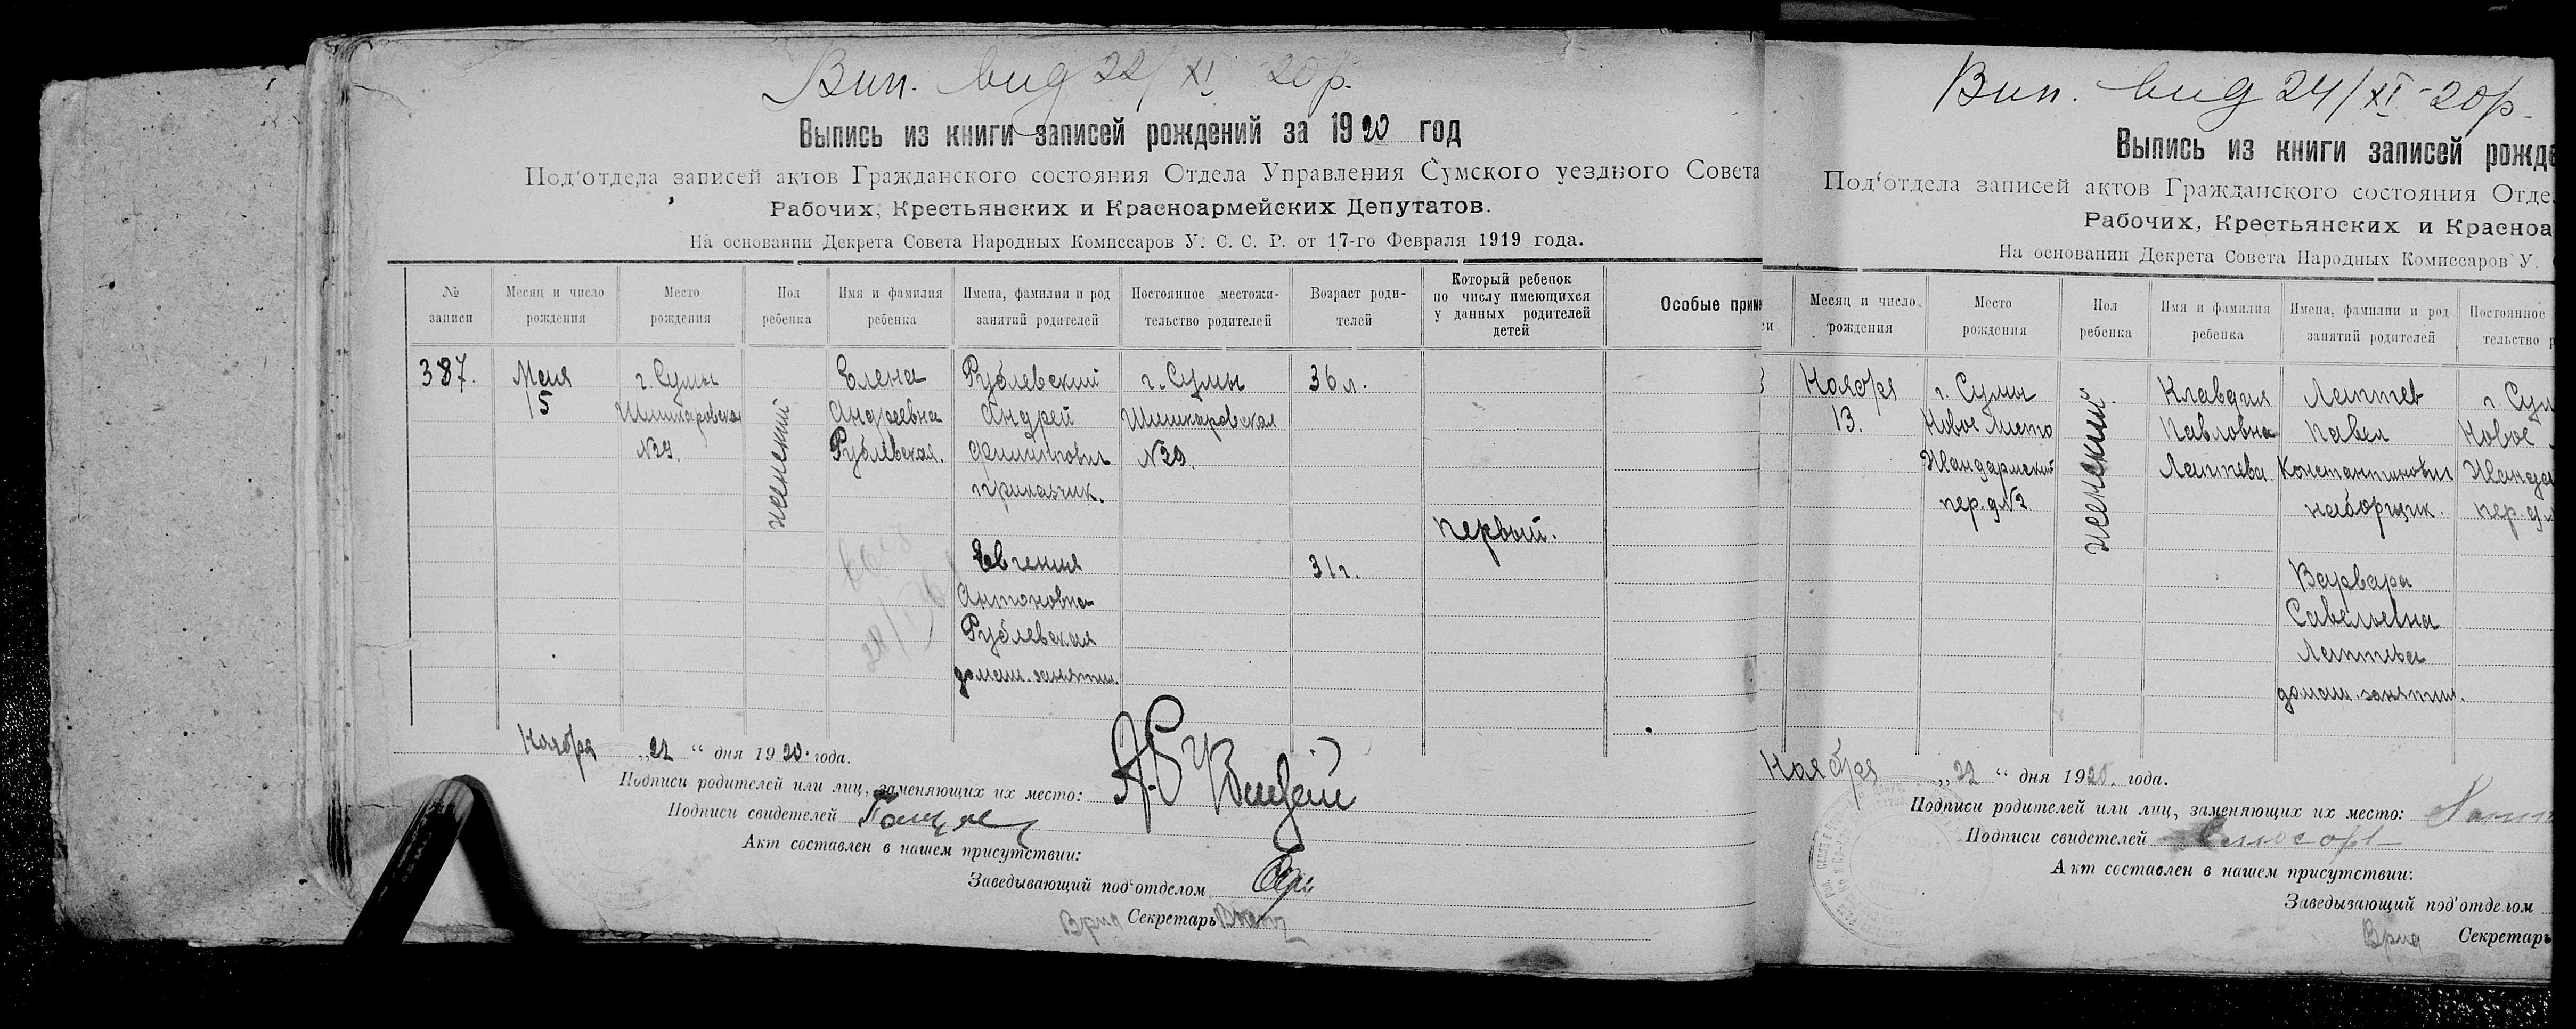 Вип. вид 22/XI 20р.
Выпись из книги записей рождений за 1920 год
Под'отдела записей актов Гражданского состояния Отдела Управления Сумского уездного Совета
Рабочих, Крестьянских и Красноармейских Депутатов.
На основании Декрета Совета Народных Комиссаров У. С. С. Р. от 17-го Февраля 1919 года.
№ записи
Месяц и число рождения
Место рождения
Пол ребенка
Имя и фамилия ребенка
Имена, фамилии и род занятий родителей
Постоянное местожительство родителей
Возраст родителей
Который ребенок по числу имеющихся у данных родителей детей
Особые приме
387.
Мая
15
г. Сумы
Шишкаровская
№29.
женский
Елена
Андреевна
Рублевская.
Рублевский
Андрей
Филиппович
приказчик.
Евгения
Антоновна
Рублевская
домаш. занятия.
г. Сумы
Шишкаровская
№29.
36 л.
31 г.
первый.
Ноября „22“ дня 1920. года.
Подписи родителей или лиц, заменяющих их место:
Подписи свидетелей
Акт составлен в нашем присутствии:
Заведывающий под'отделом
Врид Секретарь
Вип. вид 24/XI-20р.
Выпись из книги записей рожде
Под'отдела записей актов Гражданского состояния Отде
Рабочих, Крестьянских и Красноа
На основании Декрета Совета Народных Комиссаров У.
си
Месяц и число рождения
Место рождения
Пол ребенка
Имя и фамилия ребенка
Имена, фамилии и род занятий родителей
Постоянное
тельство р
3
Ноября
13.
г. Сумы
Новое Место
Жандармский
пер. д№2
женский
Клавдия
Павловна
Лаптева.
Лаптев
Павел
Константинович
наборщик.
Варвара
Савельевна
Лаптева
домаш. занятия.
г. Сум
Новое
Жанда
пер. д
Ноября „22“ дня 1920. года.
Подписи родителей или лиц, заменяющих их место:
Подписи свидетелей
Акт составлен в нашем присутствии:
Заведывающий под'отделом
Врид Секретарь